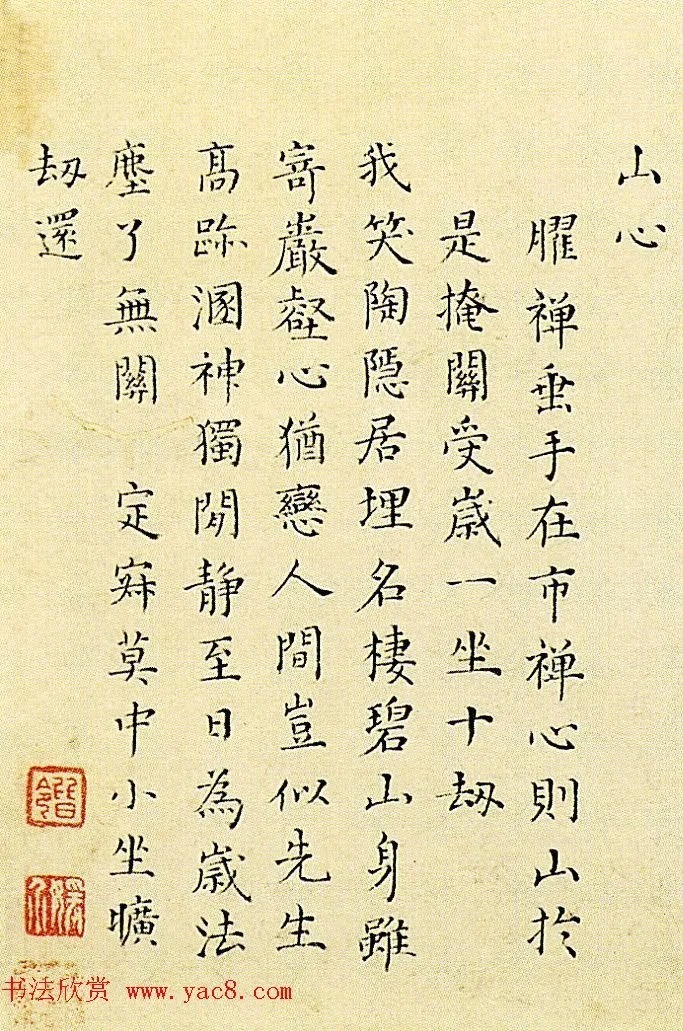 山心
臞禅垂手在市禅心則山於
是掩關受歳一坐十劫
我笑陶隱居埋名棲碧山身雖
寄巖壑心猶戀人間豈似先生
高跡溷神獨閒靜至日為歳法
塵了無關 定寂莫中小坐曠
劫還
书法欣赏 www.yac8.com